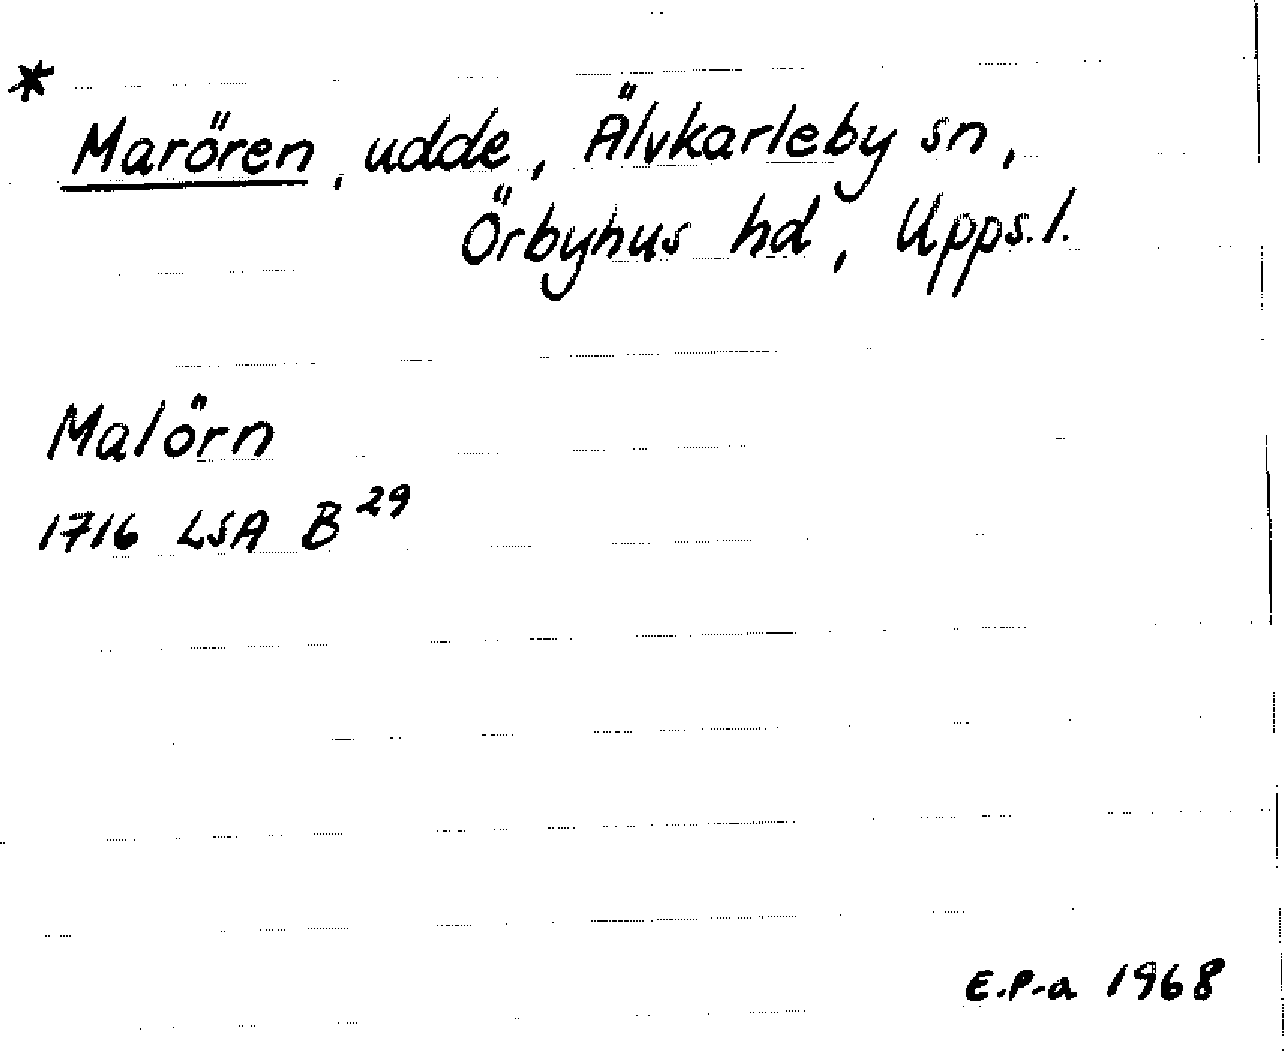 * Marören, udde, Älvkarleby sn,
Örbyhus hd, Upps.l.
Malörn
1716 LSA B²⁹
E.P-a 1968